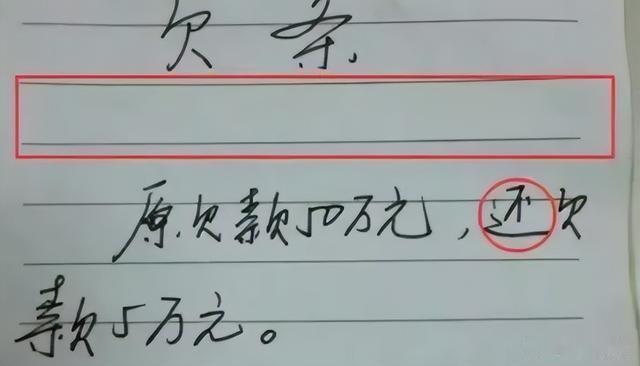 欠条
原欠款50万元，还欠
款5万元。